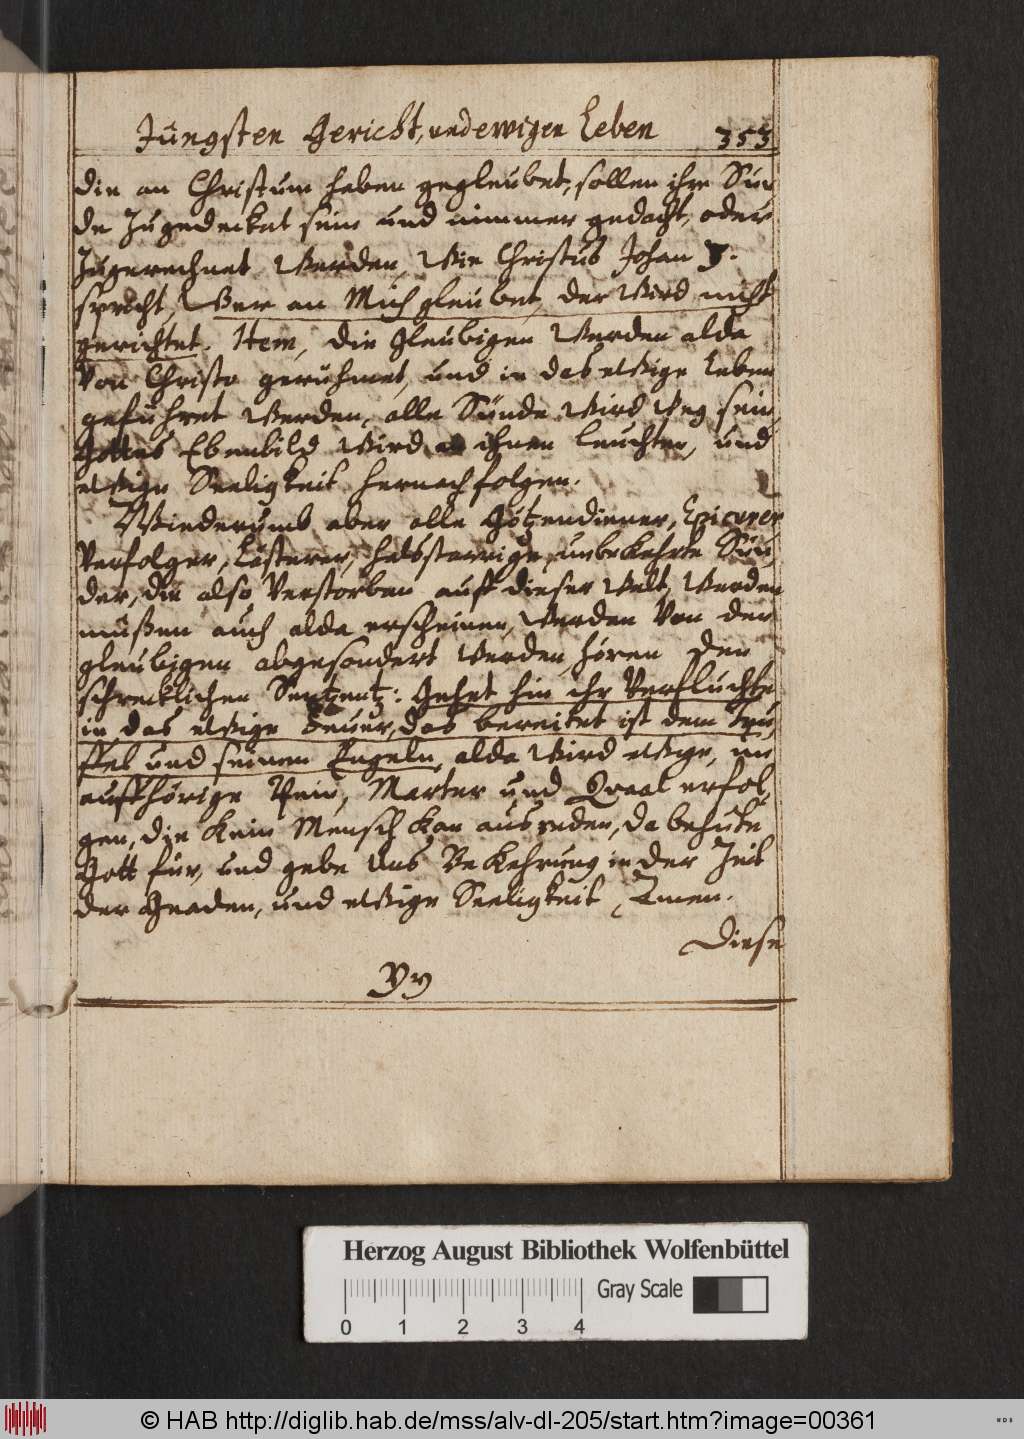 Jüngsten Gericht, und ewigen Leben 353
die an Christum haben gegleubet, sollen ihre Sün
de zugedecket sein und nimmer gedacht, oder
zugerechnet werden, wie Christus Johan 3.
spricht, Wer an Mich gleubet, der wird nicht
gerichtet. Item, die Gleubigen werden alda
von Christo gerühmet, und in das ewige Leben
geführet werden, alle Sünde wird weg sein,
Gottes Ebenbild wird ihnen leuchten, und
ewige Seeligkeit hernach folgen.
Wiederumb aber alle Götzendiener, Epicurer
Verfolger, Lästerer, halsstarrige, unbekehrte Sün,
der, die also verstorben auff dieser Welt, werden
müßen auch alda erscheinen, werden von den
gleubigen abgesondert werden, hören den
schrecklichen Sentzentz: Gehet hin ihr Verfluchte
in das ewige Feuer, das bereitet ist dem Teu,
ffel und seinen Engeln, alda wird ewige, un
auffhörige Pein, Marter und Qvaal erfol,
gen, die kein Mensch kan ausreden, da behüte
Gott für, und gebe uns Bekehrung in der Zeit
der Gnaden, und ewige Seeligkeit, Amen.
Diese
Yy
Herzog August Bibliothek Wolfenbüttel
Gray Scale
0 1 2 3 4
© HAB http://diglib.hab.de/mss/alv-dl-205/start.htm?image=00361